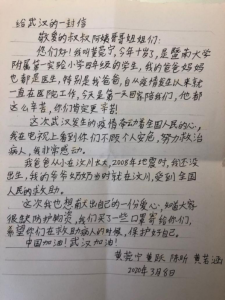 给武汉的一封信
敬爱的叔叔阿姨哥哥姐姐们：
您们好！我叫黄莞宁，今年十岁了，是暨南大学
附属第一实验小学四年级的学生，我的爸爸妈妈
也都是医生，特别是我爸爸，自从疫情发生以来就
一直在医院工作，今天是第一天回来陪我们，他都
这么辛苦，你们肯定更辛苦！
这次武汉发生的疫情牵动着全国人民的心，
我在电视上看到你们不顾个人安危，努力救治
病人，我非常感动。
我爸爸从小在汶川长大，2008年地震时，我还没
出生，我的爷爷奶奶当时就在汶川，受到全国
人民的救助。
这次我也想献出自己的一份爱心，知道大家
很缺防护物资，我们买了一些口罩寄给你们，
希望你们在救助病人的时候，保护好自己。
中国加油！武汉加油！
黄莞宁 黄跃 陈昕 黄若涵
2020年3月8日